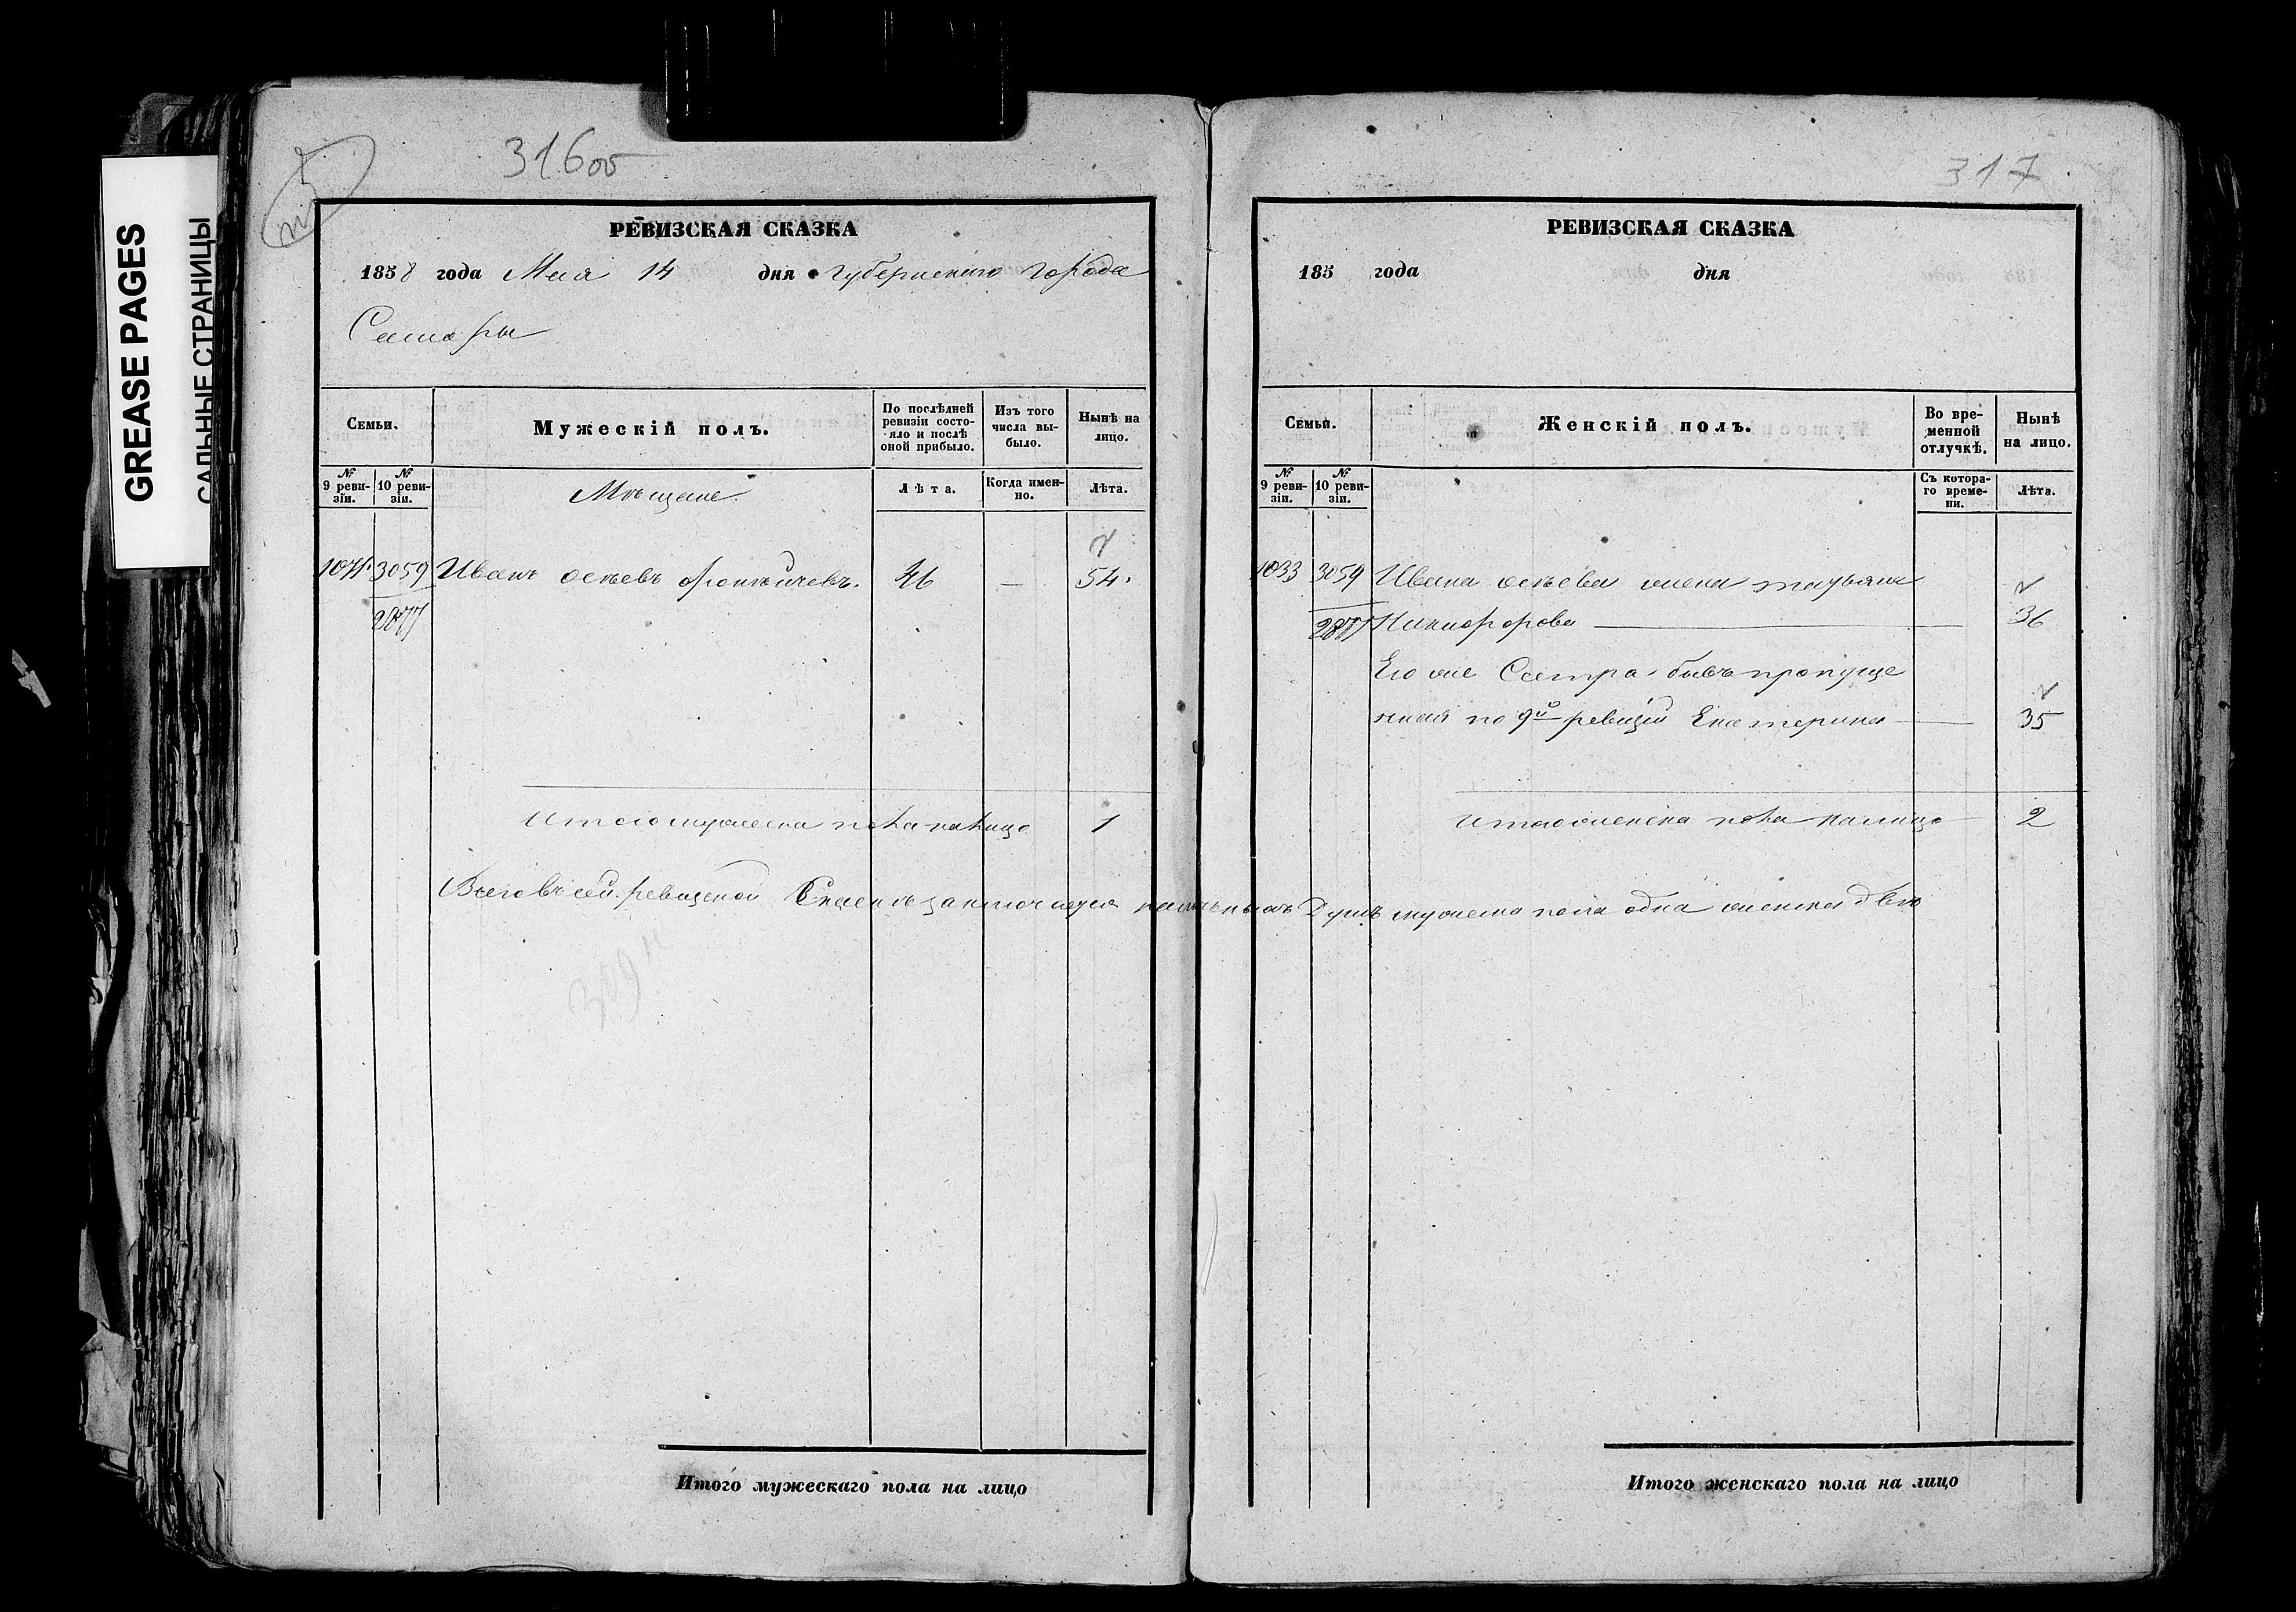 GREASE PAGES
САЛЬНЫЕ СТРАНИЦЫ
316об
РЕВИЗСКАЯ СКАЗКА
1858 года Мая 14 дня губернскаго города
Самары
Семьи.
Мужескій полъ.
По послѣдней ревизіи состояло и послѣ оной прибыло.
Изъ того числа выбыло.
Нынѣ на лицо.
№ 9 ревизіи.
№ 10 ревизіи.
Мѣщане
Лѣта.
Когда именно.
Лѣта.
3059 Иванъ 46 — 54.
2877
Итого мужеска пола на лицо 1
Всего въ сей ревизской Сказкѣ заключается наличныхъ Душъ мужеска пола одна женска двѣ
317
РЕВИЗСКАЯ СКАЗКА
185 года дня
Семьи.
Женскій полъ.
Во временной отлучкѣ.
Нынѣ на лицо.
№ 9 ревизіи.
№ 10 ревизіи.
Съ котораго времени.
Лѣта.
1033 3059 Ивана жена татьяна
2877 Никифорова — 36
Его же Сестра бывъ пропуще
нная по 9й ревизіи Екатерина — 35
Итого женска пола на лицо 2
Итого мужескаго пола на лицо
Итого женскаго пола на лицо